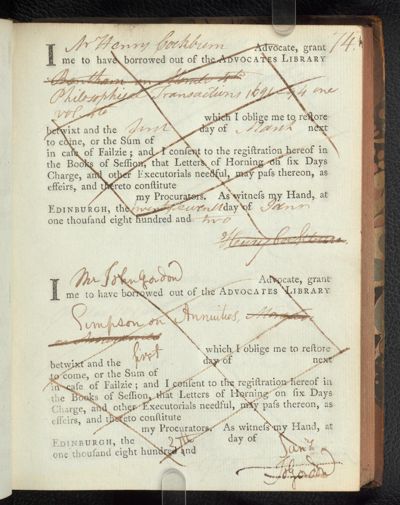 74.
I Mr Henry Cockburn Advocate, grant
me to have borrowed out of the ADVOCATES LIBRARY
Philosophical Transactions 1694 one
vol.
which I oblige me to reſtore
betwixt and the first day of March next
to come, or the Sum of
in caſe of Failzie; and I conſent to the regiſtration hereof in
the Books of Seſſion, that Letters of Horning on ſix Days
Charge, and other Executorials needful, may paſs thereon, as
effeirs, and thereto conſtitute
my Procurators. As witneſs my Hand, at
EDINBURGH, the day of Janry
one thouſand eight hundred and two
Henry Cockburn
I Mr John Gordon Advocate, grant
me to have borrowed out of the ADVOCATES LIBRARY
Simpson on Annuities,
which I oblige me to reſtore
betwixt and the first day of next
to come, or the Sum of
in caſe of Failzie; and I conſent to the regiſtration hereof in
the Books of Seſſion, that Letters of Horning on ſix Days
Charge, and other Executorials needful, may paſs thereon, as
effeirs, and thereto conſtitute
my Procurators. As witneſs my Hand, at
EDINBURGH, the 27th day of Janry
one thouſand eight hundred and
JoGordon